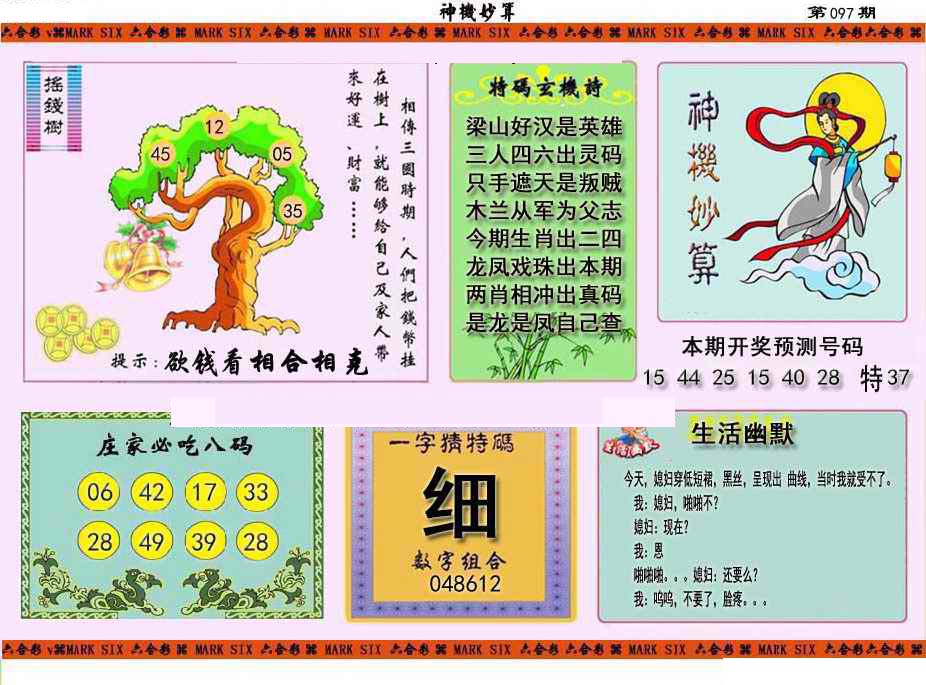 神機妙算
第097期
六合彩 v⌘MARK SIX 六合彩 ⌘ MARK SIX 六合彩 ⌘ MARK SIX 六合彩 ⌘ MARK SIX 六合彩 六合彩 ⌘ MARK SIX 六合彩 ⌘ MARK SIX 六合彩六合彩 ⌘
搖錢樹
相傳三國時期，人們把錢幣挂
在樹上，就能够給自己及家人帶
來好運、財富……
12
45
05
35
提示:欲钱看相合相克
特碼玄機詩
梁山好汉是英雄
三人四六出灵码
只手遮天是叛贼
木兰从军为父志
今期生肖出二四
龙凤戏珠出本期
两肖相冲出真码
是龙是凤自己查
神機妙算
本期开奖预测号码
15 44 25 15 40 28 特37
庄家必吃八码
06 42 17 33
28 49 39 28
一字猜特碼
细
数字组合
048612
生活幽默
生活幽默
今天，媳妇穿低短裙，黑丝，呈现出 曲线，当时我就受不了。
我：媳妇，啪啪不？
媳妇：现在？
我：恩
啪啪啪。。。媳妇：还要么？
我：呜呜，不要了，脸疼。。。
六合彩 v⌘MARK SIX 六合彩 ⌘ MARK SIX 六合彩 ⌘ MARK SIX 六合彩 ⌘ MARK SIX 六合彩 六合彩 ⌘ MARK SIX 六合彩 ⌘ MARK SIX 六合彩六合彩 ⌘